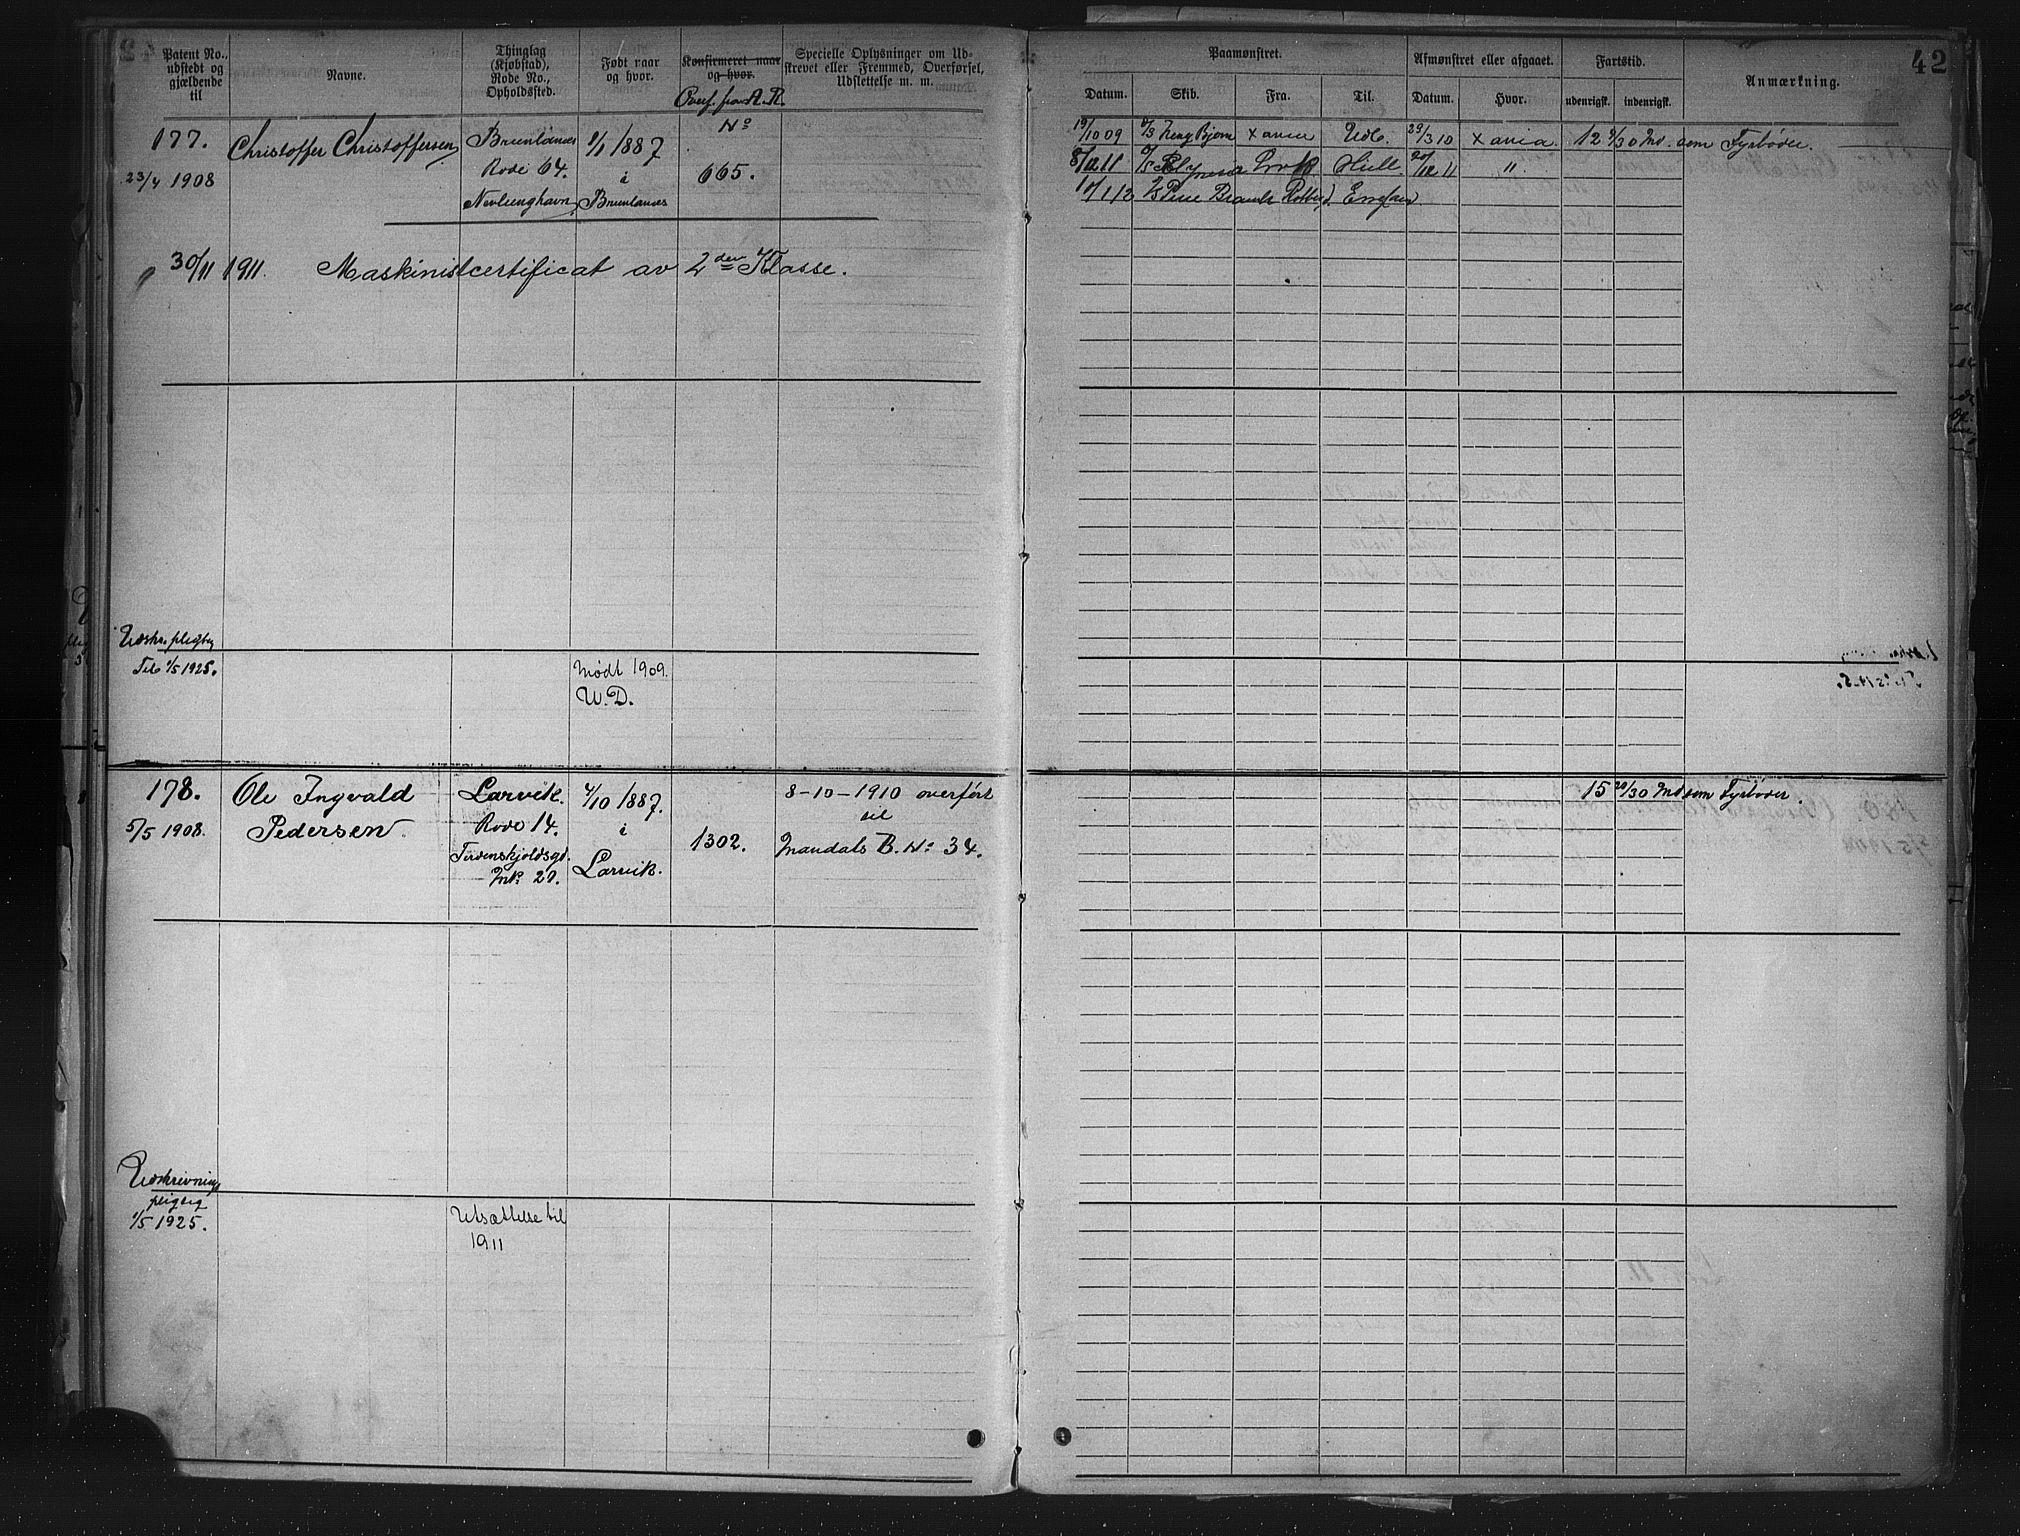 Patent No., udstedt og gjældende til
Navne.
Thinglag (Kjøbstad), Rode No., Opholdssted.
Født naar og hvor.
Konfirmeret naar og hvor.
Overf. fra A. R.
No
Specielle Oplysninger om Udskrevet eller Fremmed, Overførsel, Udslettelse m. m.
Paamønstret.
Datum.
Skib.
Fra.
Til.
Afmønstret eller afgaaet.
Datum.
Hvor.
Fartstid.
udenrigsk.
indenrigsk.
Anmærkning.
42
177.
23/4 1908
Christoffer Christoffersen
Brunlanes
Rode 64.
Nevlunghavn
1/1 1887
i
Brunlanes
665.
19/10 09 Kong Bjørn Xania Udl. 29/3 10 Xania 12 9/30 Md. som Fyrbøder.
8/12 11 Lrvk Hull 20/12 11 "
10/1 12
30/11 1911. Maskinistcertificat av 2den Klasse.
Udskr. pligtig
Til 1/5 1925.
Mødt 1909.
U.D.
178.
5/5 1908.
Ole Ingvald
Pedersen.
Larvik.
Rode 14.
Tordenskjoldsgd.
Mk. 27.
4/10 1887.
i
Larvik.
1302.
8-10-1910 overført
til
Mandals B. No 34.
15 20/30 Md som Fyrbøder.
Udskrivnings
pligtig
1/5 1925.
Utsættelse til
1911